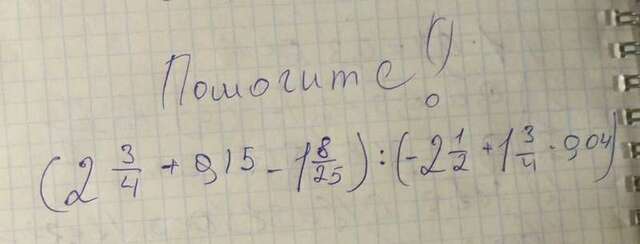 Помогите!
(2 3/4 + 0,15 - 1 8/25) : (-2 1/2 + 1 3/4 · 0,04)